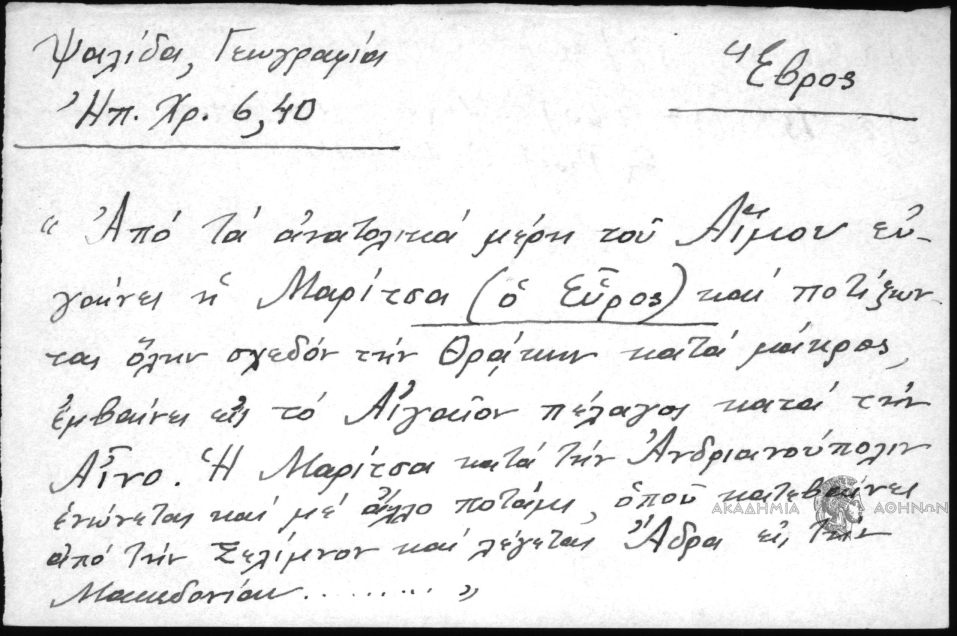 Ψαλίδα, Γεωγραφία
Ἠπ. Χρ. 6,40
Ἕβρος
“ Ἀπό τά ἀνατολικά μέρη τοῦ Αἵμου εὐ-
γαίνει ἡ Μαρίτσα (ὁ Εὗρος) καί ποτίζων-
τας ὅλην σχεδόν τήν Θράκην κατά μάκρος,
ἐμβαίνει εἰς τό Αἰγαῖον πέλαγος κατά τήν
Αἶνο. Ἡ Μαρίτσα κατά τήν Ἀνδριανούπολιν
ἑνώνεται καί μέ ἄλλο ποτάμι, ὁποῦ κατεβαίνει
ἀπό τήν Σελίμνον καί λέγεται Ἄδρα εἰς τήν
Μακεδονίαν ......... ”
ΑΚΑΔΗΜΙΑ ΑΘΗΝΩΝ